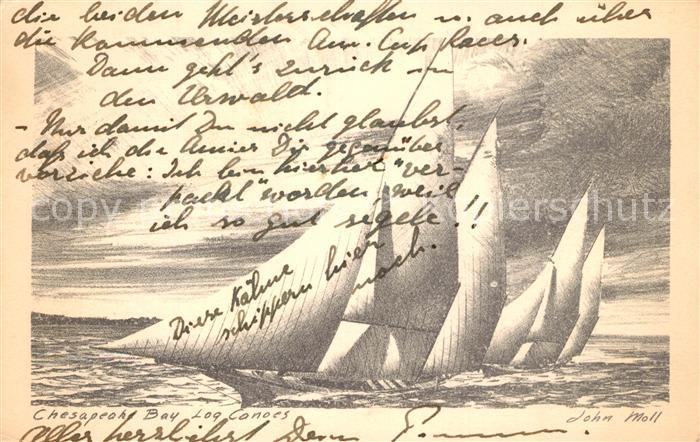 die beiden Meisterschaften u. auch über
die kommenden Am. Cup Races.
Dann geht's zurück in
den Urwald.
- Nur damit Du nicht glaubst,
daß ich die Amier Dir gegenüber
vorziehe: Ich bin hierher "ver-
frachtet" worden, weil
ich so gut segele!!
Diese Kähne
schippern hier
noch.
Chesapeake Bay Log Canoes
John Moll
Allerherzlichst Dein